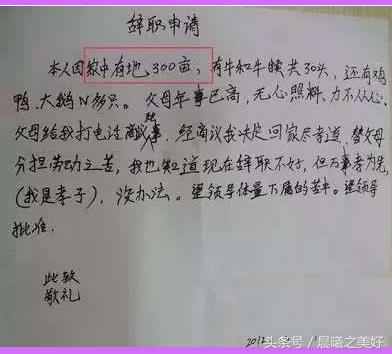 辞职申请
本人因家中有地300亩，有牛和牛犊共30头，还有鸡
鸭、大鹅N多只。父母年事已高，无心照料，力不从心
父母给我打电话商议事，经商议我决定回家尽孝道，替父母
分担劳动之苦，我也知道现在辞职不好，但万事孝为先
(我是孝子)，没办法。望领导体量下属的苦中。望领导
批准.
此致
敬礼
头条号／晨曦之美好